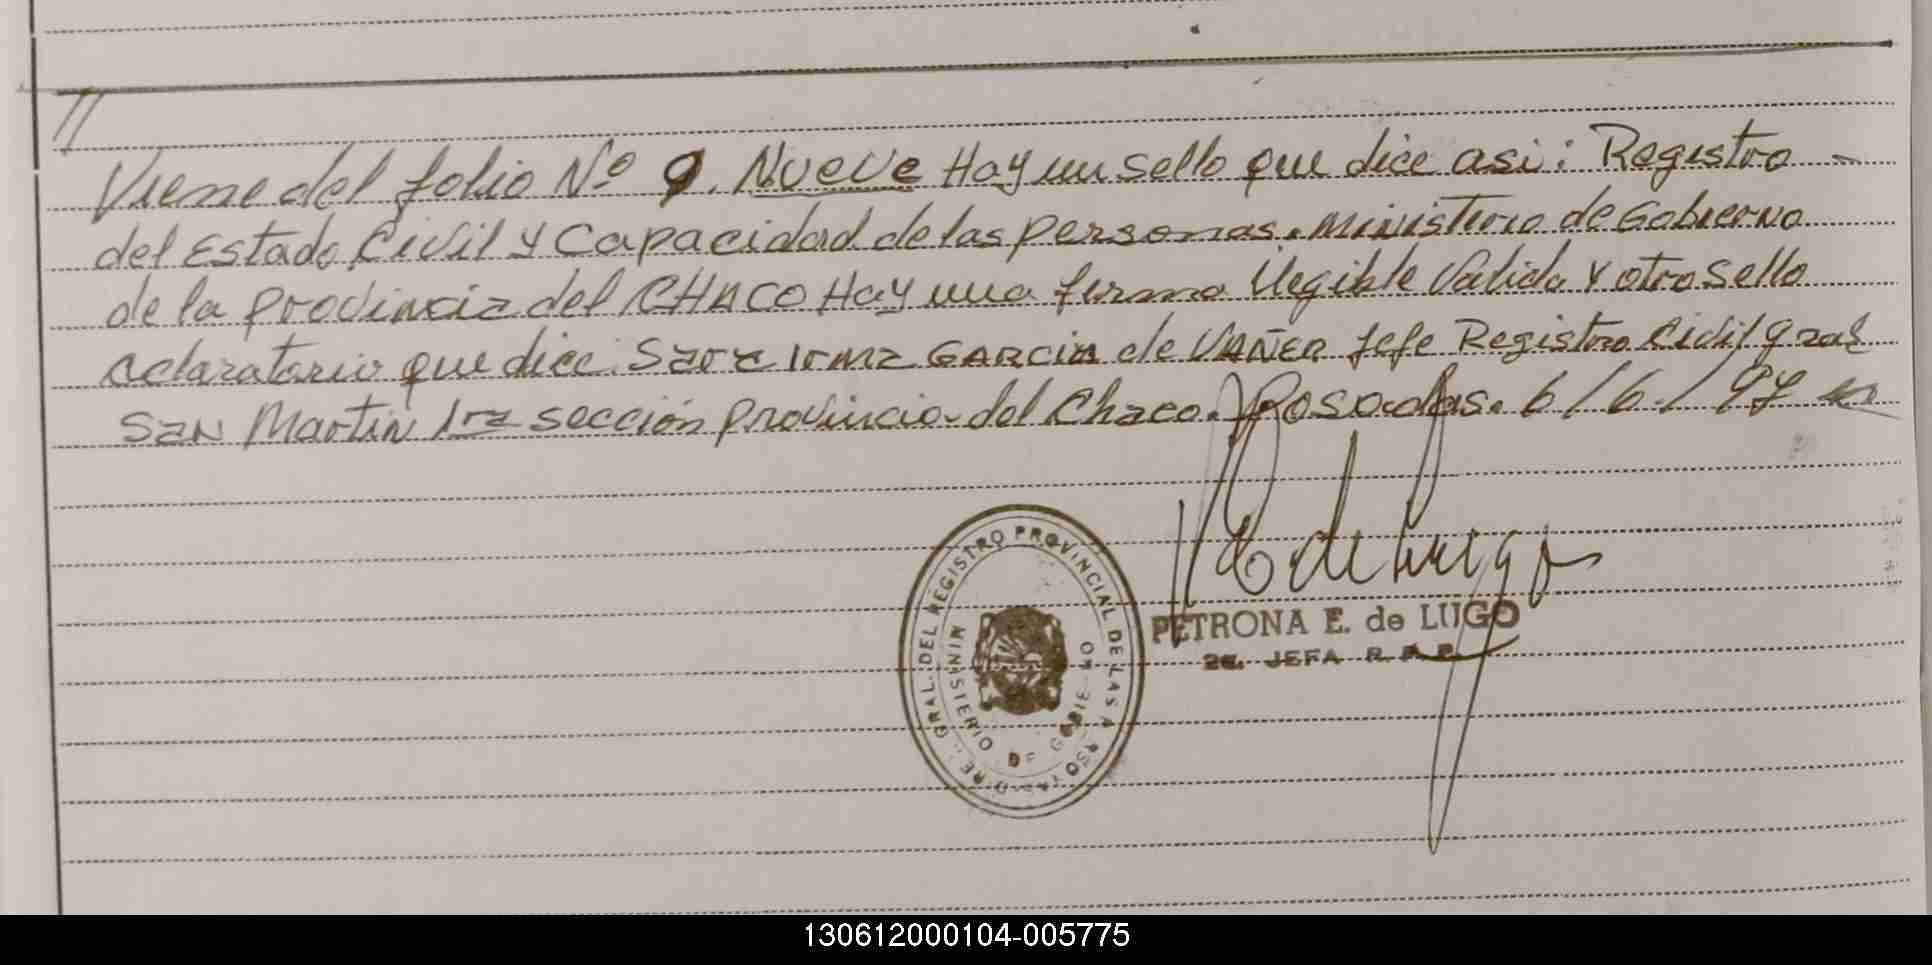 //
Viene del folio Nº 9. Nueve Hay un sello que dice asi: Registro -
del Estado Civil y Capacidad de las personas. Ministerio de Gobierno
de la provincia del CHACO Hay una firma ilegible Valida y otro sello
aclaratorio que dice: Sara Irma GARCIA de VAÑER Jefe Registro Civil gral
San Martin 1ra sección provincia del Chaco. Posadas. 6/6/97
P E de Lugo
PETRONA E. de LUGO
2a. JEFA R. P. P.
GRAL. DEL REGISTRO PROVINCIAL DE LAS
MINISTERIO DE
130612000104-005775